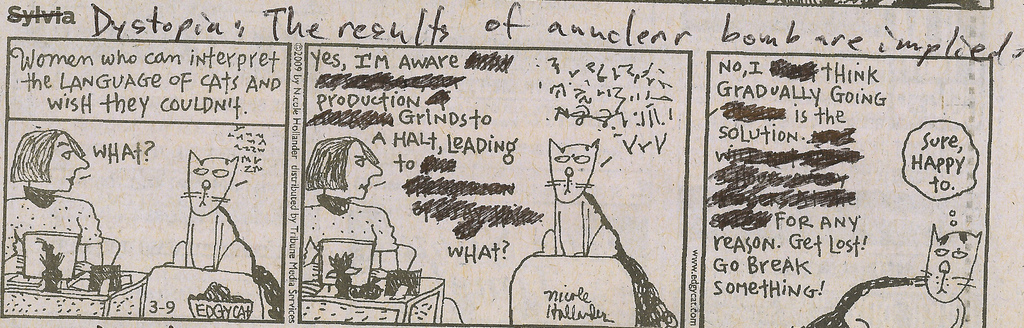 Sylvia Dystopia: The results of a nuclear bomb are implied.
Women who can interpret
the LANGUAGE OF CATS AND
wish they COULDN'T.
WHAT?
3-9
EDGYCAT
©2009 by Nicole Hollander distributed by Tribune Media Services
yes, I'M AWARE
PRODUCTION
GRINDS to
A HALT, LEADING
to
WHAT?
nicole
Hollander
www.edgycat.com
NO, I THINK
GRADUALLY GOING
is the
SOLUTION.
FOR ANY
REASON. Get Lost!
GO BREAK
SOMETHING!
Sure,
HAPPY
to.